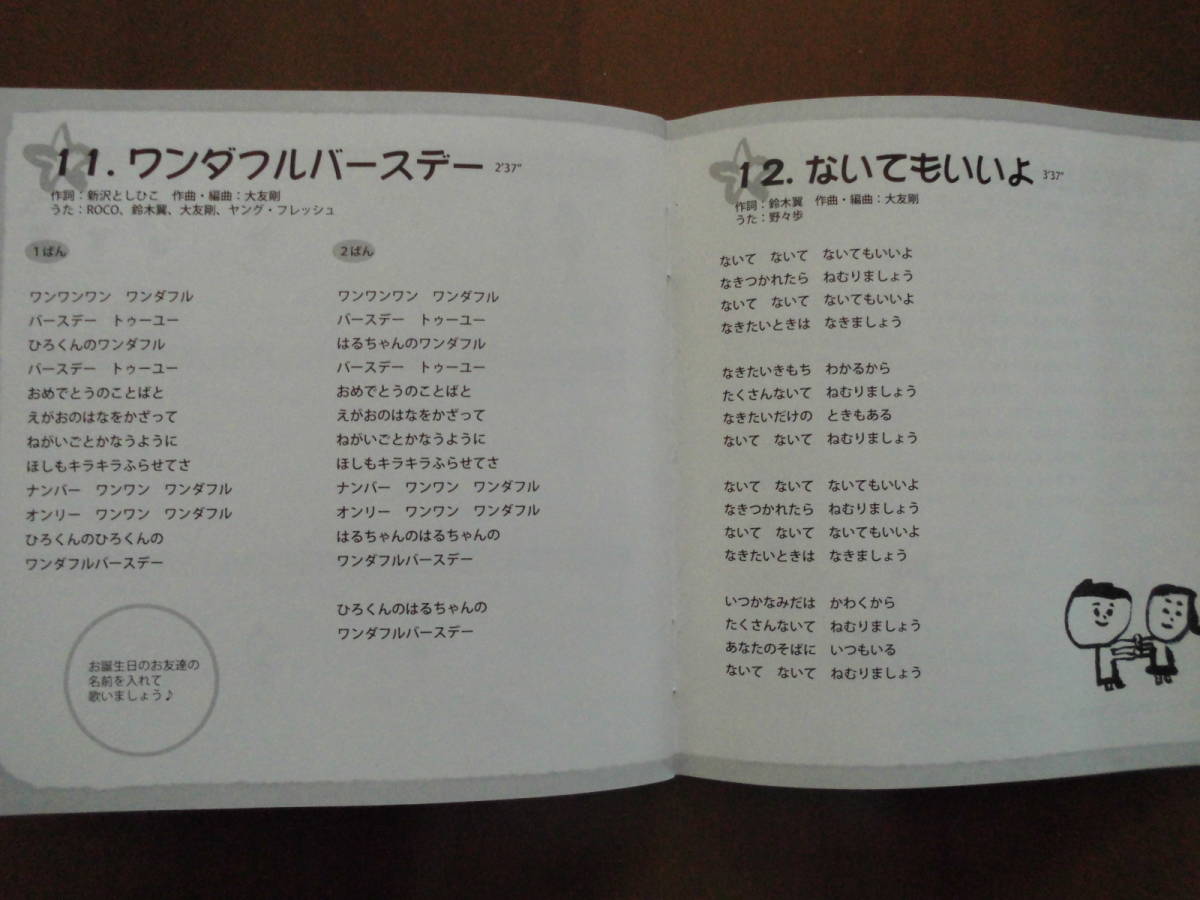 11. ワンダフルバースデー 2'37"
作詞：新沢としひこ　作曲・編曲：大友剛
うた：ROCO、鈴木翼、大友剛、ヤング・フレッシュ
1ばん
ワンワンワン　ワンダフル
バースデー　トゥーユー
ひろくんのワンダフル
バースデー　トゥーユー
おめでとうのことばと
えがおのはなをかざって
ねがいごとかなうように
ほしもキラキラふらせてさ
ナンバー　ワンワン　ワンダフル
オンリー　ワンワン　ワンダフル
ひろくんのひろくんの
ワンダフルバースデー
お誕生日のお友達の
名前を入れて
歌いましょう♪
2ばん
ワンワンワン　ワンダフル
バースデー　トゥーユー
はるちゃんのワンダフル
バースデー　トゥーユー
おめでとうのことばと
えがおのはなをかざって
ねがいごとかなうように
ほしもキラキラふらせてさ
ナンバー　ワンワン　ワンダフル
オンリー　ワンワン　ワンダフル
はるちゃんのはるちゃんの
ワンダフルバースデー
ひろくんのはるちゃんの
ワンダフルバースデー
12. ないてもいいよ 3'37"
作詞：鈴木翼　作曲・編曲：大友剛
うた：野々歩
ないて　ないて　ないてもいいよ
なきつかれたら　ねむりましょう
ないて　ないて　ないてもいいよ
なきたいときは　なきましょう
なきたいきもち　わかるから
たくさんないて　ねむりましょう
なきたいだけの　ときもある
ないて　ないて　ねむりましょう
ないて　ないて　ないてもいいよ
なきつかれたら　ねむりましょう
ないて　ないて　ないてもいいよ
なきたいときは　なきましょう
いつかなみだは　かわくから
たくさんないて　ねむりましょう
あなたのそばに　いつもいる
ないて　ないて　ねむりましょう